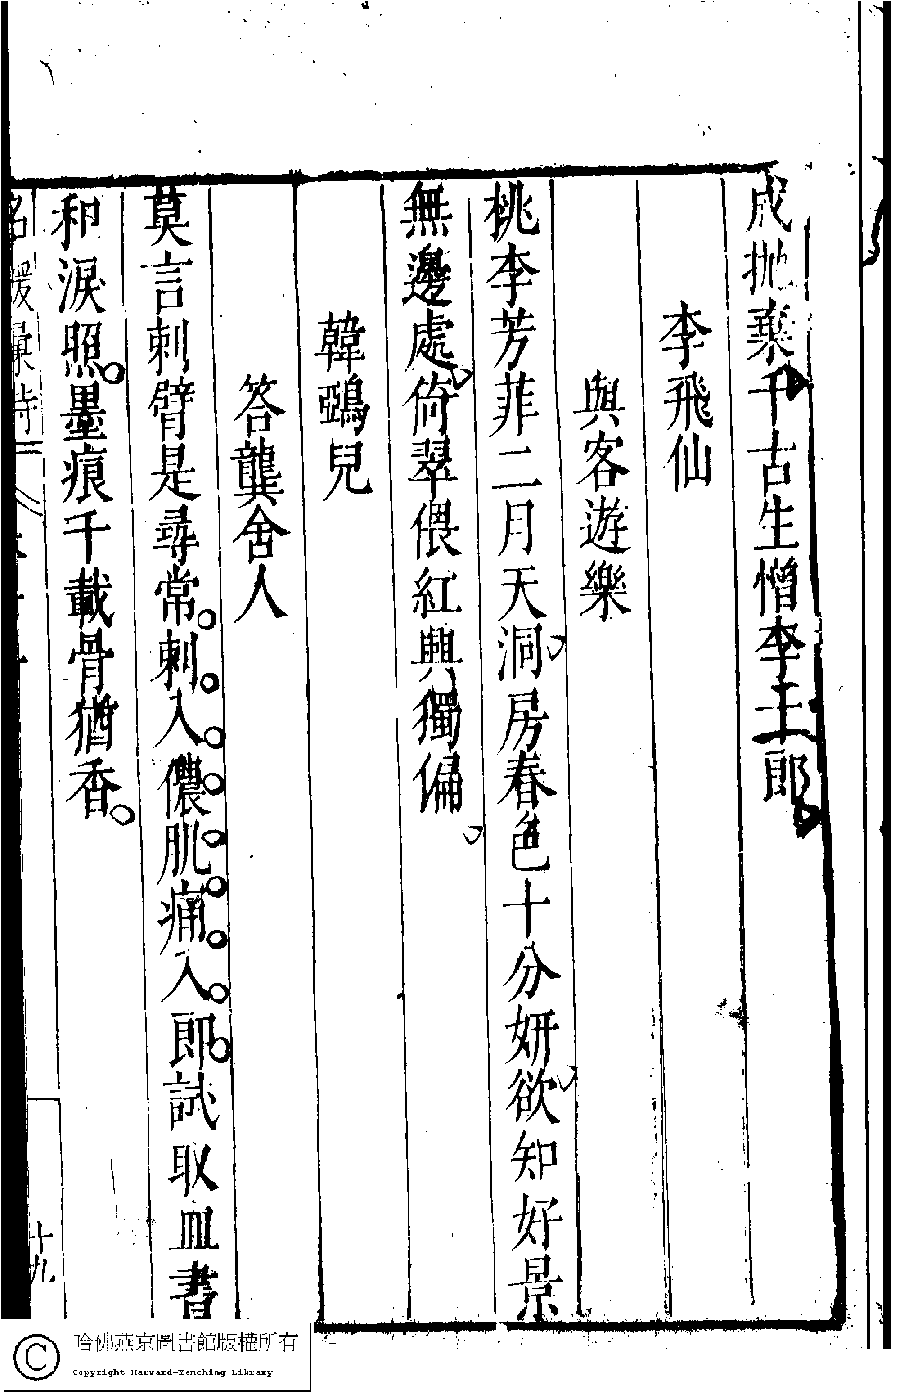 成抛棄千古生憎李王郎
李飛仙
與客遊樂
桃李芳菲二月天洞房春色十分妍欲知好景
無邊處倚翠偎紅興獨偏
韓鵶兒
答龔舍人
莫言刺臂是尋常刺入儂肌痛入郎試取血書
和淚照墨痕千載骨猶香
名媛彙詩
十九
哈佛燕京圖書館版權所有
Copyright Harvard-Yenching Library